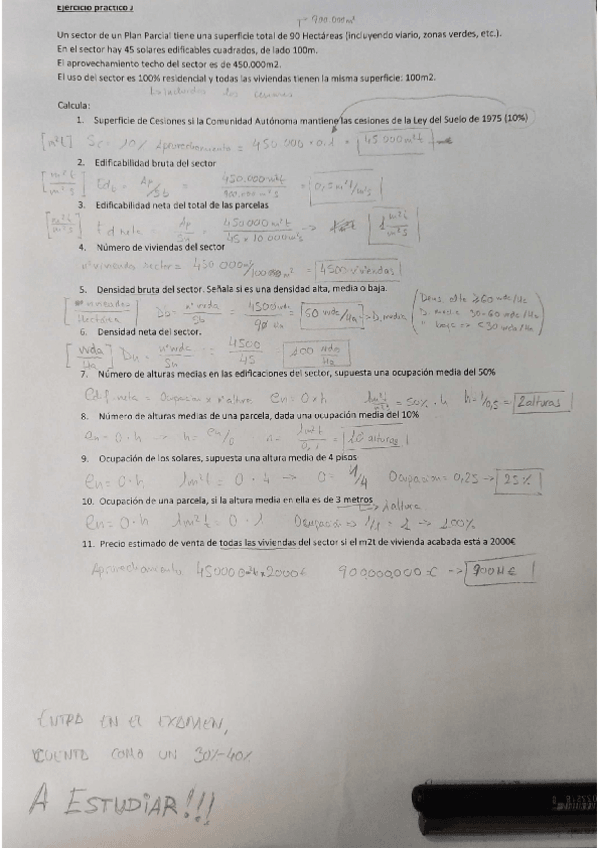 Ejercicio práctico 2
T = 900.000 m²
Un sector de un Plan Parcial tiene una superficie total de 90 Hectáreas (incluyendo viario, zonas verdes, etc.).
En el sector hay 45 solares edificables cuadrados, de lado 100m.
El aprovechamiento techo del sector es de 450.000m2.
El uso del sector es 100% residencial y todas las viviendas tienen la misma superficie: 100m2.
Calcula:
1. Superficie de Cesiones si la Comunidad Autónoma mantiene las cesiones de la Ley del Suelo de 1975 (10%)
[m²t] Sc = 10% Aprovechamiento = 450.000 · 0,1 = 45000m²t
2. Edificabilidad bruta del sector
[m²t/m²s] Edb = Ap/Sb = 450.000m²t/900.000m²s = 0,5m²t/m²s
3. Edificabilidad neta del total de las parcelas
[m²t/m²s] Ed neta = Ap/Sn = 450000m²t/45 x 10.000m²s -> 1 m²t/m²s
4. Número de viviendas del sector
nº viviendas sector = 450 000 m²t/100 m² = 4500 viviendas
5. Densidad bruta del sector. Señala si es una densidad alta, media o baja.
[nº viviendas/Hectárea] Db = nº vvda/Sb = 4500 vvda/90 Ha = 50 vvda/Ha -> D. media
D. media 30-60 vvda/Ha
6. Densidad neta del sector.
[vvda/Ha] Dn = nº vvda/Sn = 4500/45 = 100 vvda/Ha
7. Número de alturas medias en las edificaciones del sector, supuesta una ocupación media del 50%
Edif. neta = Ocupacion x nº alturas en = O x h 1m²t/m²s = 50% · h h = 1/0,5 = 2 alturas
8. Número de alturas medias de una parcela, dada una ocupación media del 10%
en = O · h -> h = en/O = 10 alturas
9. Ocupación de los solares, supuesta una altura media de 4 pisos
en = O · h 1m²t = O · 4 -> O = 1/4 Ocupacion = 0,25 -> 25%
10. Ocupación de una parcela, si la altura media en ella es de 3 metros -> 1 altura
en = O · h 1m²t = O · 1 Ocupación => 1/1 = 1 -> 100%
11. Precio estimado de venta de todas las viviendas del sector si el m2t de vivienda acabada está a 2000€
Aprovechamiento 450000m²t x 2000€ 900,000,000 € -> 900M€
ENTRA EN EL EXAMEN,
CUENTA COMO UN 30%-40%
A ESTUDIAR!!!